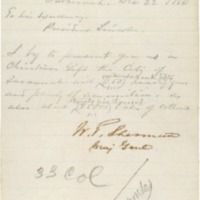 Savannah Dec 22 186
To his Excellency
President Lincoln
I beg to present you as a
Christmas Gift the City of
Savannah with guns
and plenty of ammunition &
also about bales of cotton
W. T. Sherman
Maj Genl
33 Col